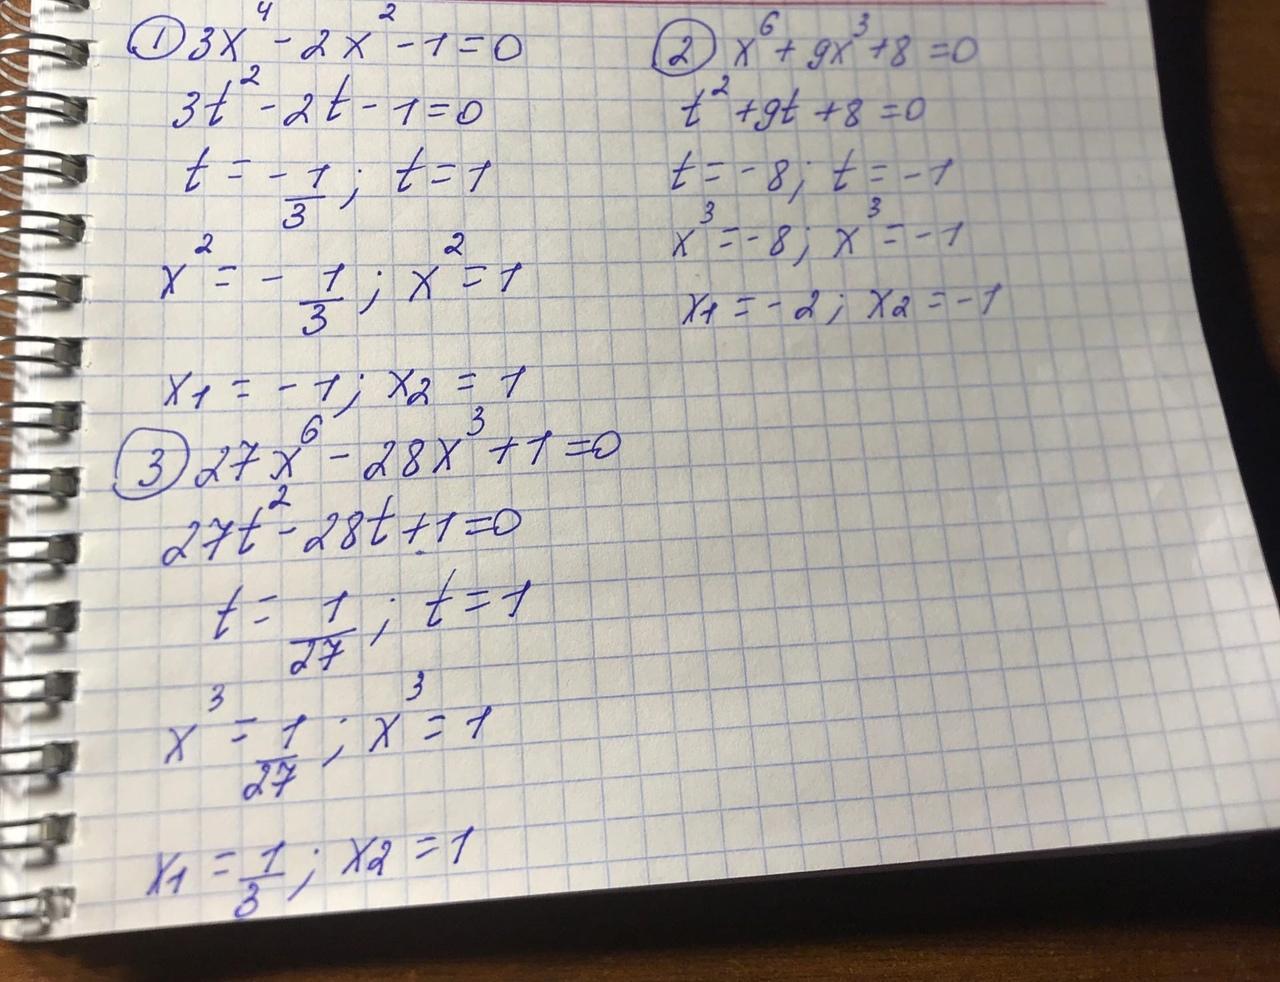 ① 3x⁴ - 2x² - 1 = 0
3t² - 2t - 1 = 0
t = - 1/3 ; t = 1
x² = - 1/3 ; x² = 1
x1 = - 1 ; x2 = 1
② x⁶ + 9x³ + 8 = 0
t² + 9t + 8 = 0
t = - 8 ; t = - 1
x³ = - 8 ; x³ = - 1
x1 = - 2 ; x2 = - 1
③ 27x⁶ - 28x³ + 1 = 0
27t² - 28t + 1 = 0
t = 1/27 ; t = 1
x³ = 1/27 ; x³ = 1
x1 = 1/3 ; x2 = 1